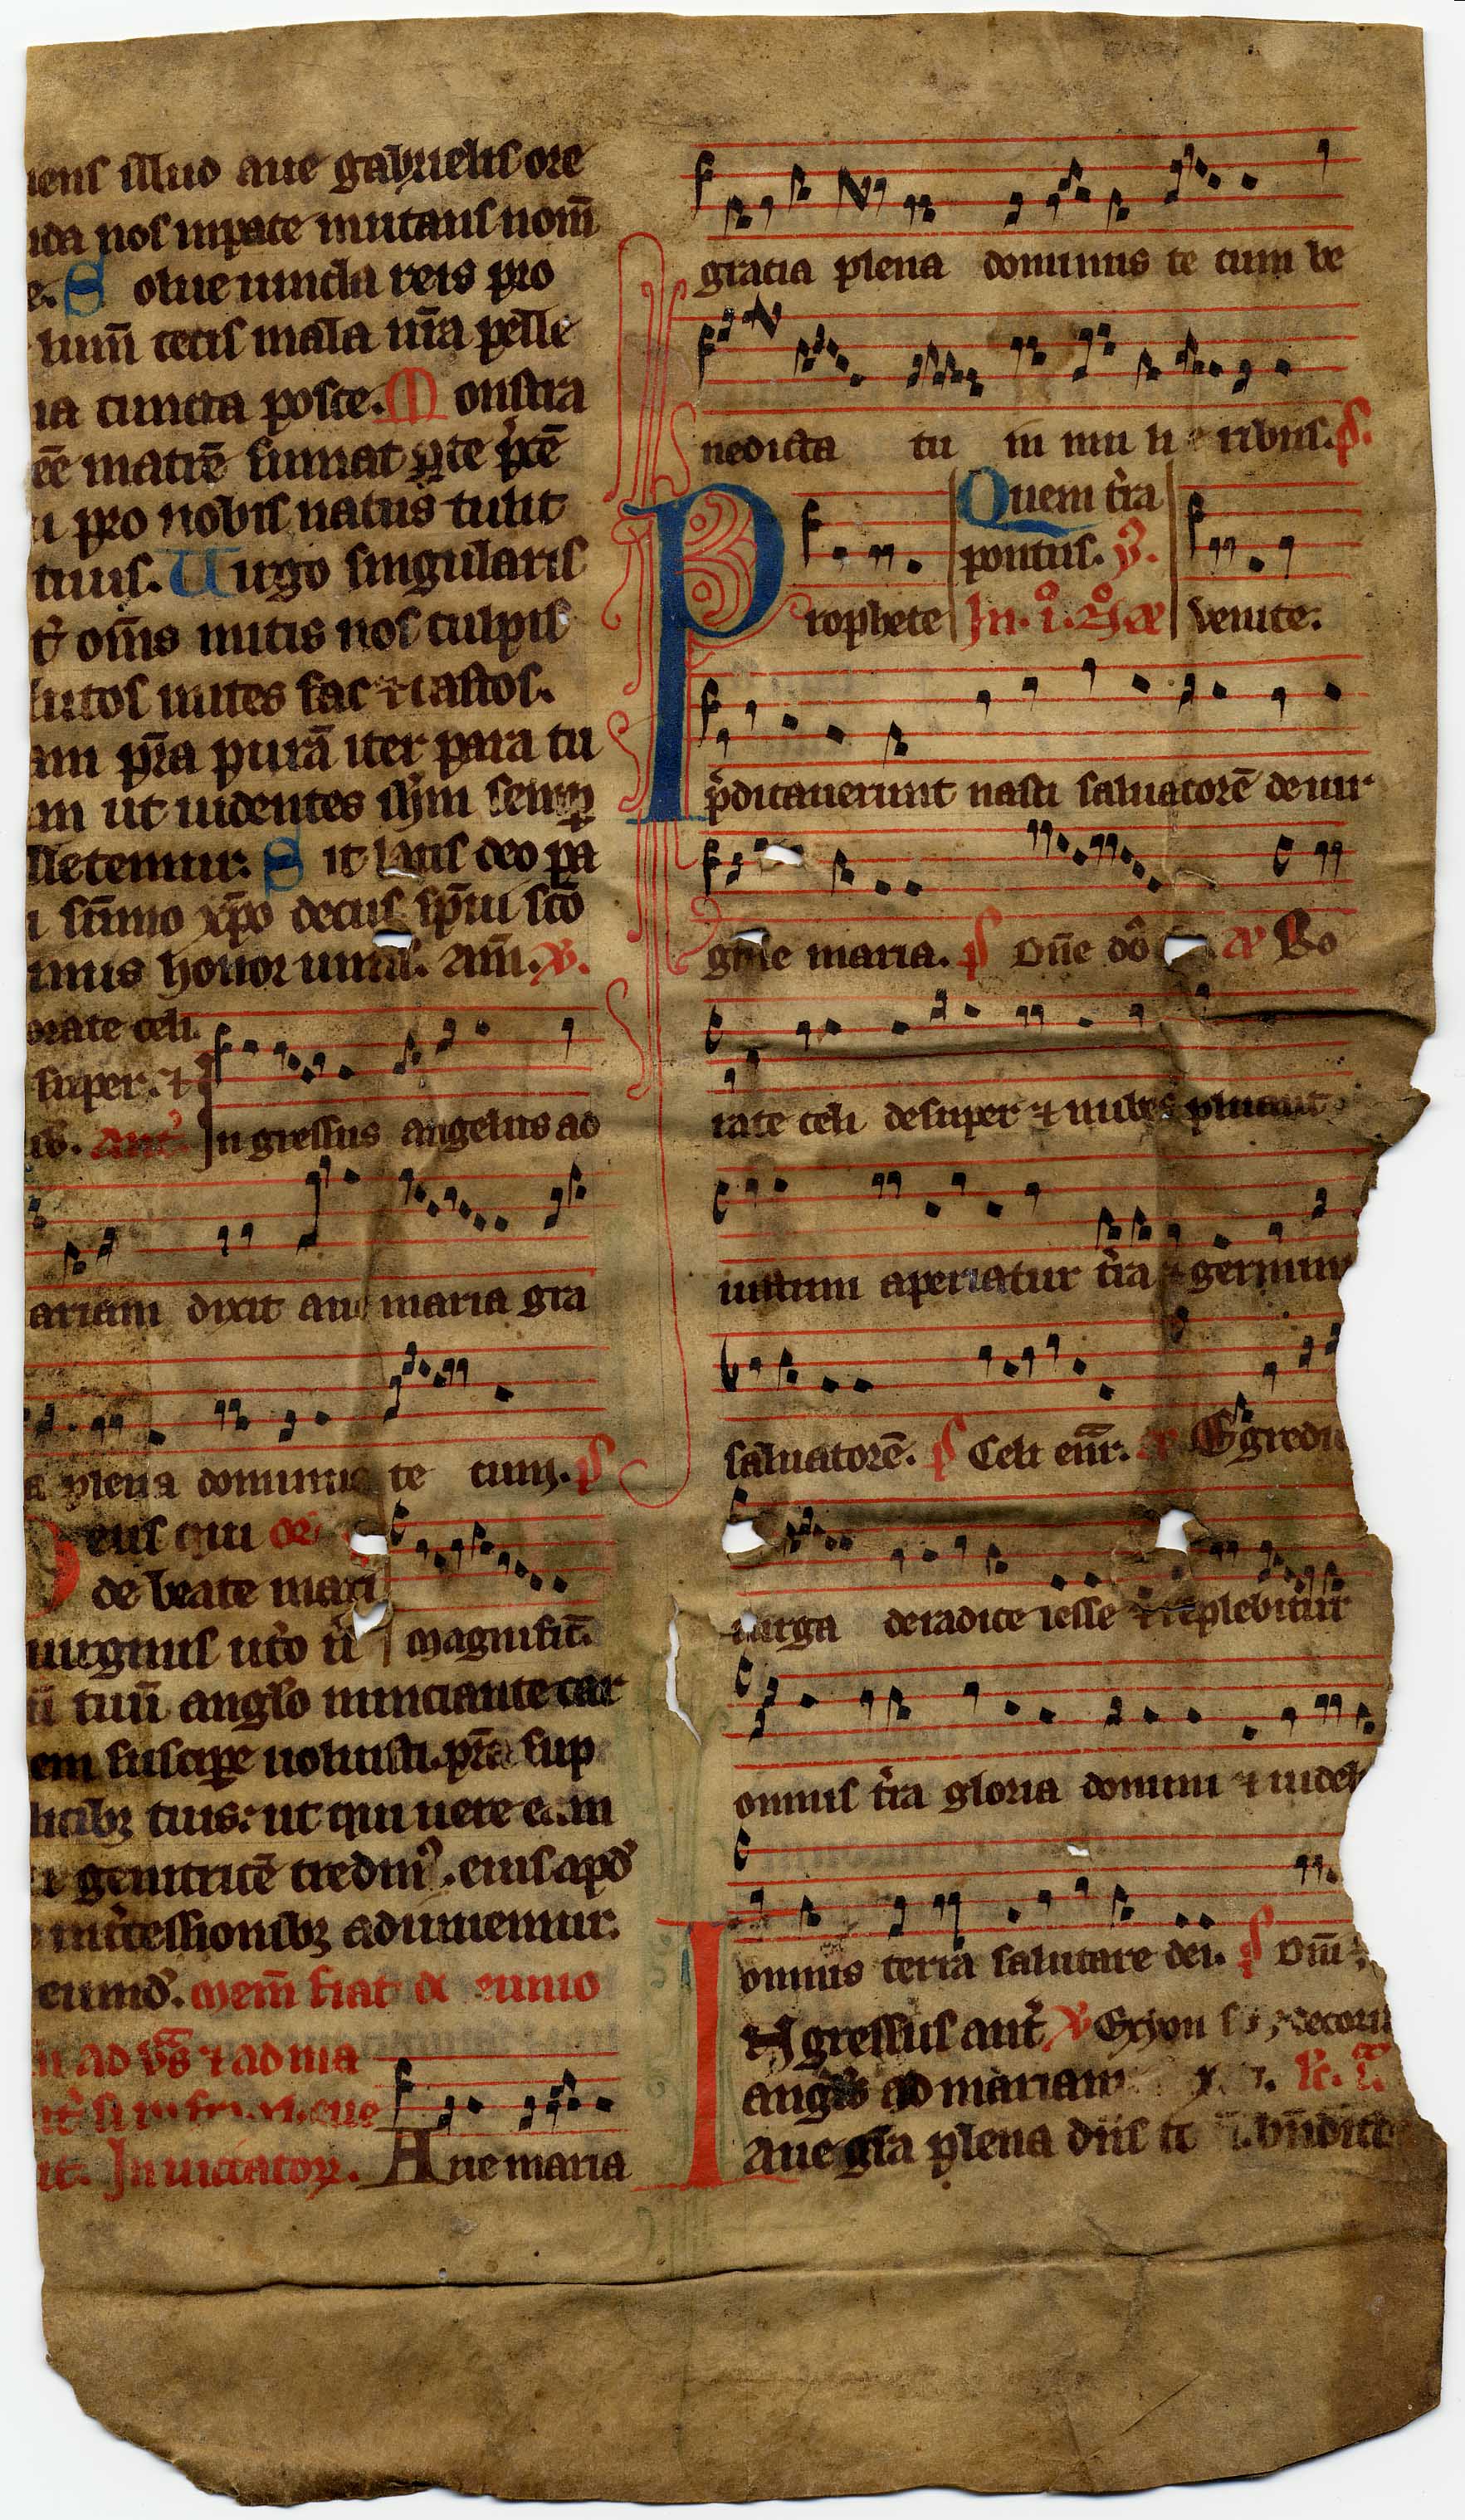 iens illud aue gabrielis ore
ida nos in pace mutans nom̄
e. Solue uincla reis pro
lum̄ cecis mala nr̄a pelle
ia cuncta posce. Monstra
eē matrē sumat ꝑ te p̄cē
i pro nobis natus tulit
tuus. Uirgo singularis
t̄ om̄s mitis nos culpis
lutos mites fac ⁊ castos.
am pr̄a purā iter para tu
m ut uidentes ihm̄ semꝑ
lletemur. Sit laus deo pa
i sūmo xp̄o decus sp̄ui scō
inus honor unus. Am̄. ℣.
orate celi
super. ⁊
Ant̄. Ingressus angelus ad
ariam dixit aue maria gra
a plena dominus te cum. ps
Deus qui de
de beate mari
uirginis ut̓o u̓ magnificat̄
ū tuū anglo nunciante car
em suscipe uoluisti. pr̄a sup
licibꝫ tuis: ut qui uere eam
i genitricē credim᷒. eius apd̓
int̓cessionibꝫ adiuuemur.
eumd̓. mem̄ fiat de
ad ⁊ ad ma
it. Inuitatoꝝ. Aue maria
gratia plena dominus te cum be
nedicta tu in mu li e ribus. ps.
Quem t̓ra
pontus.
Prophete In. i. noc̄ Venite.
p̄dicauerunt nasci saluatorē de uir
gine maria. ps Dn̄e dō Ro
rate celi desuper ⁊ nubes pluant
iustum aperiatur t̓ra ⁊ germin
saluatorē. ps Celi enar̄. Egredi
uirga de radice iesse ⁊ replebitur
omnis t̓ra gloria domini ⁊ uideb
omnis terra salutare dei. ps Dn̄i
Ingressus ant̄. ℣ Ex syon decoris
angls ad mariam
Aue gr̄a plena dn̄s bn̄dicta